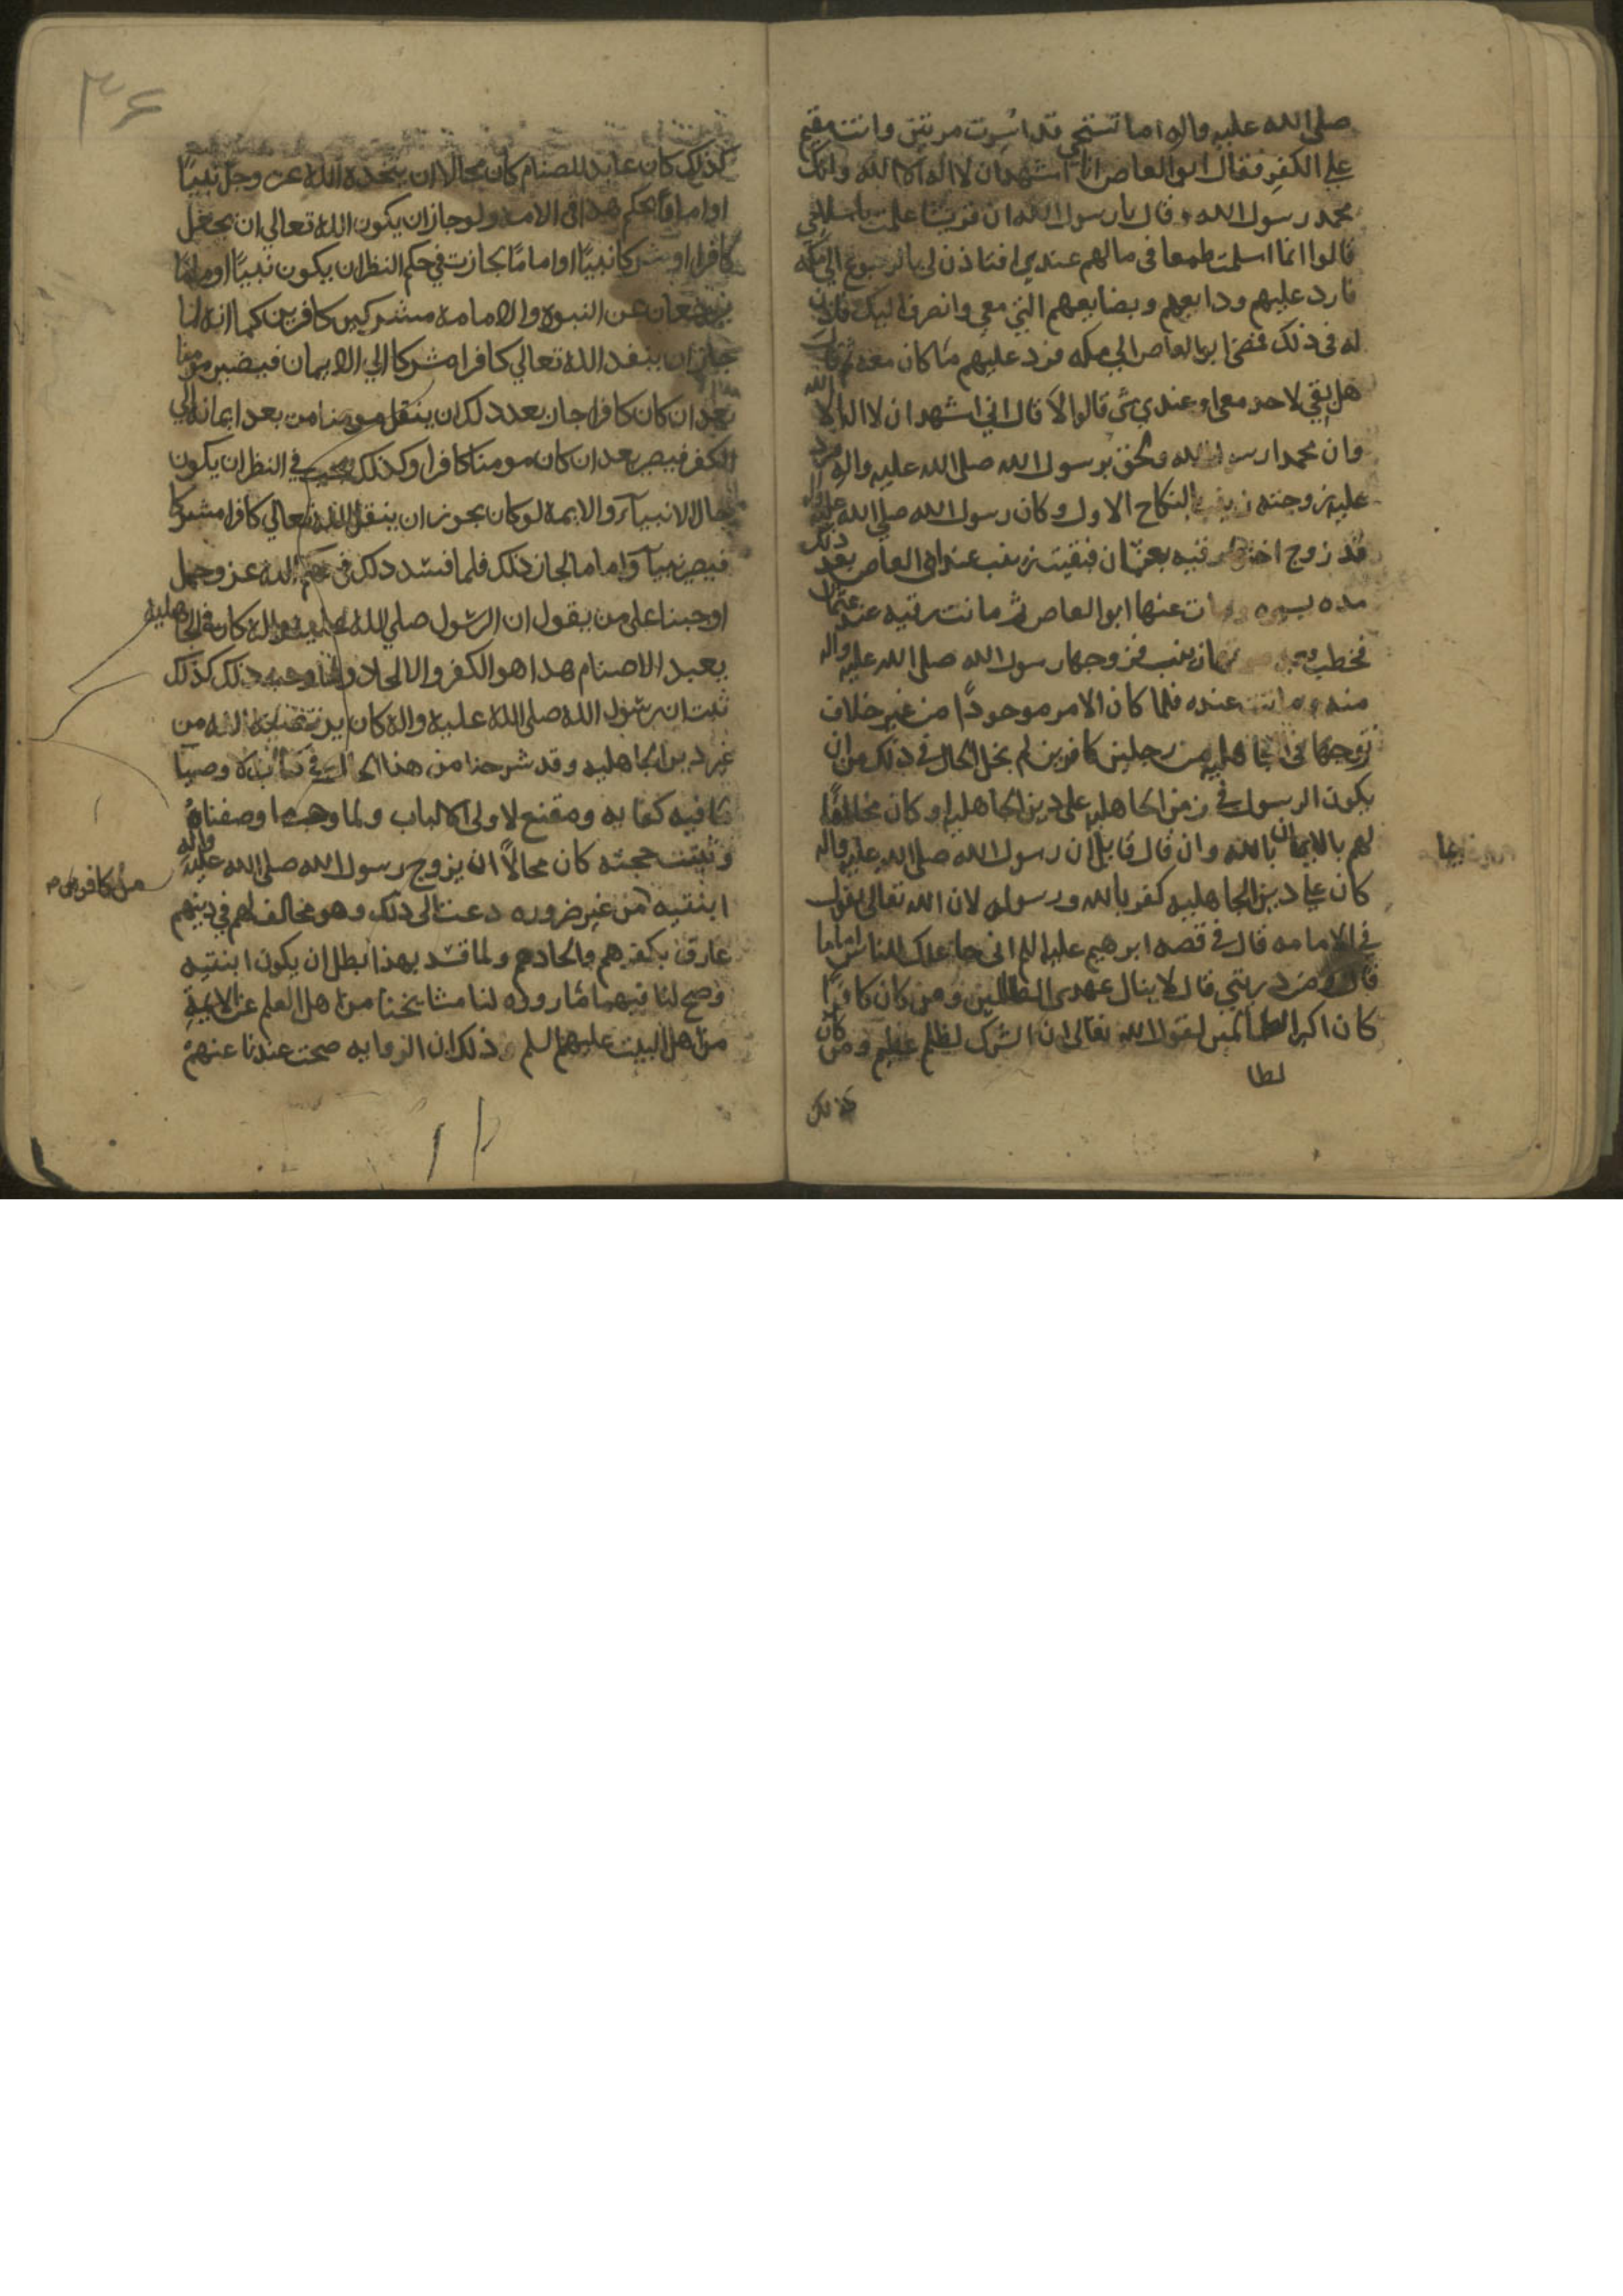 صلى الله عليه واله اما تستحي قد اسرت مرتين وانت مقيم
على الكفر فقال ابو العاص انا اشهد ان لا اله الا الله وانك
محمد رسول الله وقال يا رسول الله ان قريشا علمت باسلامي
قالوا انما اسلمت طمعا في مالهم عندي افتاذن لي بالرجوع الى مكه
فارد عليهم ودايعهم وبضايعهم التي معي وانصرف اليك فاذن
له في ذلك فمضى ابو العاص الى مكه فرد عليهم ما كان معه ثم قال
هل بقي لاحد معي او عندي شي قالوا لا قال اني اشهد ان لا اله الا الله
وان محمدا رسول الله ولحق برسول الله صلى الله عليه واله فرد
عليه زوجته زينب بالنكاح الاول وكان رسول الله صلى الله عليه واله
قد زوج اختها رقيه بعثمان فبقيت زينب عند ابي العاص بعد ذلك
مده يسيره ومات عنها ابو العاص ثم ماتت رقيه عند عثمان
فخطب زينب فزوجها رسول الله صلى الله عليه واله
منه وماتت عنده فلما كان الامر موجودا من غير خلاف
تزوجها في الجاهليه من رجلين كافرين لم يخل الحال في ذلك من ان
يكون الرسول في زمن الجاهليه على دين الجاهليه او كان مخالفا
لهم بالايمان بالله وان قال قايل ان رسول الله صلى الله عليه واله
كان على دين الجاهليه كفر بالله ورسوله لان الله تعالى يقول
في الامامه قال في قصه ابرهيم عليه السلم اني جاعلك للناس اماما
قال ومن ذريتي قال لا ينال عهدي الظالمين ومن كان كافرا
كان اكبر الظالمين لقول الله تعالى ان الشرك لظلم عظيم ومن كان
لظا
كذلك
٣۶
كذلك كان عابد للصنام كان محالا ان يتخذه الله عز وجل نبيا
او اماما بحكم هذا في الامه ولو جاز ان يكون الله تعالى ان يجعل
كافرا او مشركا نبيا او اماما لجازت في حكم النظر ان يكون نبيا او اماما
يرجعان عن النبوه والامامه مشركين كافرين كما انه لنا
جاز ان ينقد الله تعالى كافرا مشركا الي الايمان فيصير مومنا
بعد ان كان كافرا جاز بعد ذلك ان ينقل مومنا من بعد ايمانه الي
الكفر فيصير بعد ان كان مومنا كافرا وكذلك في النظر ان يكون
حال الانبيآء والايمه لو كان يجوز ان ينقل الله تعالي كافرا مشركا
فيصير نبيا او اماما لجاز ذلك فلما فسد ذلك في حكم الله عز وجل
اوجبنا على من يقول ان الرسول صلي الله عليه واله كان في الجاهليه
يعبد الاصنام هذا هو الكفر والالحاد ولما وجب ذلك كذلك
ثبت ان رسول الله صلى الله عليه واله كان من
غير دين الجاهليه وقد شرحنا من هذا الحال في
ما فيه كفايه ومقنع لاولي الالباب ولما وجب ما وصفناه
وثبتت حجته كان محالا ان يزوج رسول الله صلى الله عليه واله
ابنتيه من غير ضروره دعت الى ذلك وهو مخالف لهم في دينهم
من كافرين
عارف بكفرهم والحادهم ولما فسد بهذا بطل ان يكون ابنتيه
وصح لنا فيهما ما رووه لنا مشايخنا من اهل العلم عن الايمة
من اهل البيت عليهم السلم وذلك ان الروايه صحت عندنا عنهم